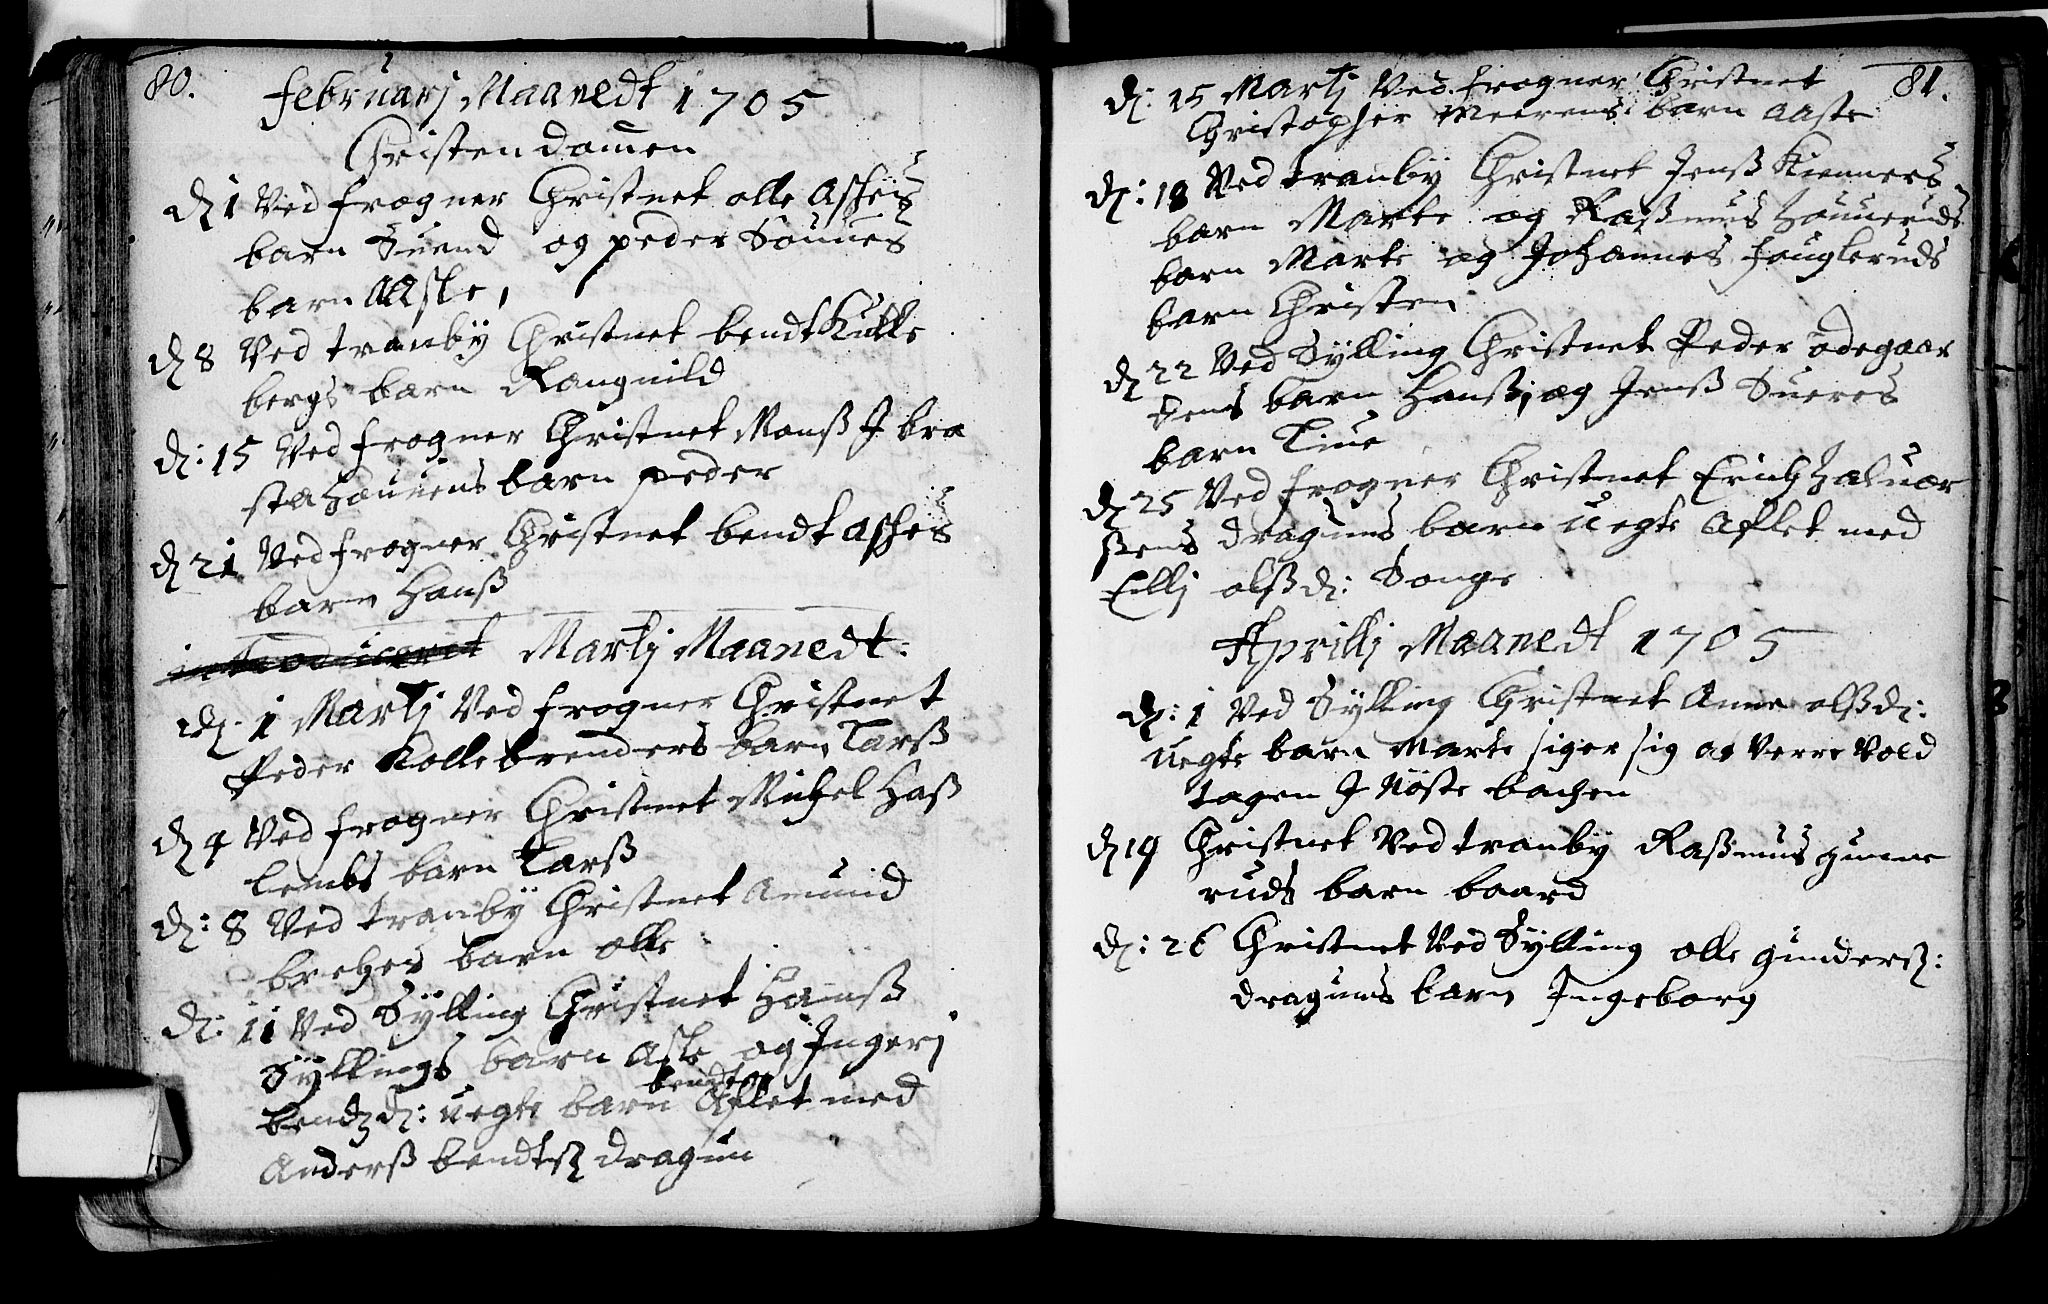 80.
Februarj Maanedt 1705
Christendommen
d: 1 Ved frogner Christnet olle Askeis
barn Suend og peder Sönnes
barn Aasle,
d: 8 Ved tranby Christnet bendt Kulle
bergs barn Rangnild
d: 15 Ved frogner Christnet Monß J bra
stahouuens barn peder
d: 21 Ved frogner Christnet bendt Askeis
barn Hanß
introduceret Martij Maanedt:
d: 1 Martj Ved frogner Christnet
Peder Kollebrenders barn Larß
d: 4 Ved frogner Christnet Michel Haß
lembs barn Larß
d: 8 Ved tranby Christnet Amund
brehes barn olle
d: 11 Ved Sylling Christnet Hanß
Syllings barn Asle og Jngerj
bendt
bendz d: uegte barn Aflet med
Anderß bendtsz dragun
81.
d: 15 Martj Ved frogner Christnet
Christopher Meerens barn Aaste
d: 18 Ved tranby Christnet Jenß Kienners
barn Marte og Raßmus Houueruds
barn Marte og Johannes fougleruds
barn Christen
d: 22 Ved Sylling Christnet Peder ödegaar
dens barn Hanß, og Jenß Sueres
barn Liue
d: 25 Ved frogner Christnet Erich Haluor
ßens draguns barn uegte Aflet med
Ellj olßd: Songe
Aprillj Maanedt 1705
d: 1 Ved Sylling Christnet Anne olßd:
uegte barn Marte siger sig at Verre Vold
tagen J Nöste bachen
d: 19 Christnet Ved tranby Raßmus gunne
ruds barn baard
d: 26 Christnet Ved Sylling olle gundersz:
draguns barn Jngeborg